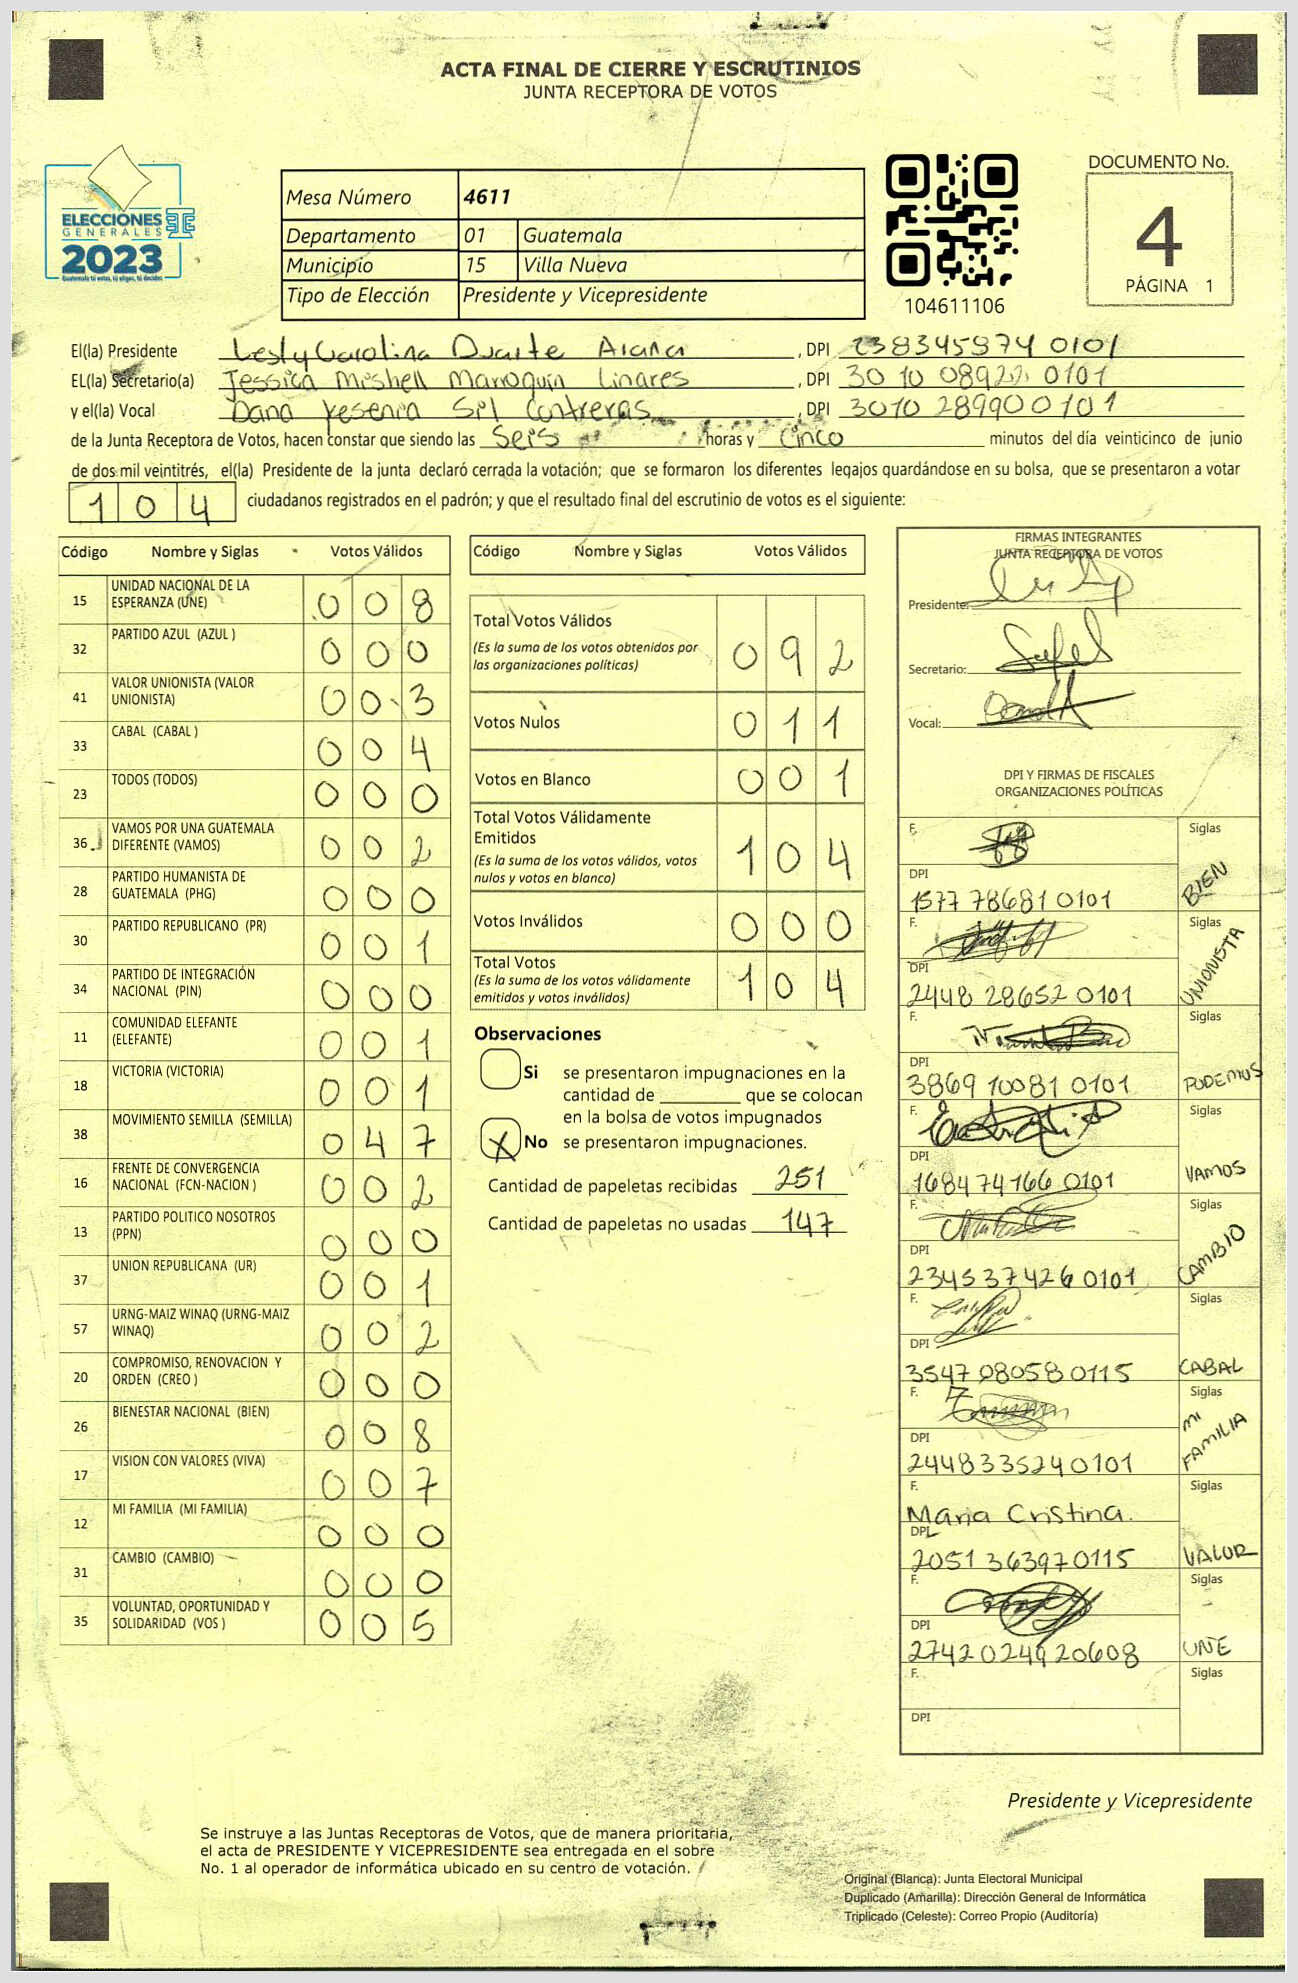 ACTA FINAL DE CIERRE Y ESCRUTINIOS
JUNTA RECEPTORA DE VOTOS
ELECCIONES
GENERALES
2023
Guatemala tú votas, tú eliges, tú decides
Mesa Número 4611
Departamento 01 Guatemala
Municipio 15 Villa Nueva
Tipo de Elección Presidente y Vicepresidente
104611106
DOCUMENTO No.
4
PÁGINA 1
El(la) Presidente Lesly Carolina Duarte Arana , DPI 238345974 0101
EL(la) Secretario(a) Jessica Mishell Marroquín Linares , DPI 3010 0892 0101
y el(la) Vocal Dana Yesenia Contreras , DPI 3010 28990 0101
de la Junta Receptora de Votos, hacen constar que siendo las Seis horas y cinco minutos del día veinticinco de junio
de dos mil veintitrés, el(la) Presidente de la junta declaró cerrada la votación; que se formaron los diferentes legajos guardándose en su bolsa, que se presentaron a votar
104 ciudadanos registrados en el padrón; y que el resultado final del escrutinio de votos es el siguiente:
Código Nombre y Siglas Votos Válidos
15 UNIDAD NACIONAL DE LA ESPERANZA (UNE) 008
32 PARTIDO AZUL (AZUL ) 000
41 VALOR UNIONISTA (VALOR UNIONISTA) 003
33 CABAL (CABAL ) 004
23 TODOS (TODOS) 000
36 VAMOS POR UNA GUATEMALA DIFERENTE (VAMOS) 002
28 PARTIDO HUMANISTA DE GUATEMALA (PHG) 000
30 PARTIDO REPUBLICANO (PR) 001
34 PARTIDO DE INTEGRACIÓN NACIONAL (PIN) 000
11 COMUNIDAD ELEFANTE (ELEFANTE) 001
18 VICTORIA (VICTORIA) 001
38 MOVIMIENTO SEMILLA (SEMILLA) 047
16 FRENTE DE CONVERGENCIA NACIONAL (FCN-NACION ) 002
13 PARTIDO POLITICO NOSOTROS (PPN) 000
37 UNION REPUBLICANA (UR) 001
57 URNG-MAIZ WINAQ (URNG-MAIZ WINAQ) 002
20 COMPROMISO, RENOVACION Y ORDEN (CREO ) 000
26 BIENESTAR NACIONAL (BIEN) 008
17 VISION CON VALORES (VIVA) 007
12 MI FAMILIA (MI FAMILIA) 000
31 CAMBIO (CAMBIO) 000
35 VOLUNTAD, OPORTUNIDAD Y SOLIDARIDAD (VOS ) 005
Código Nombre y Siglas Votos Válidos
Total Votos Válidos 092
(Es la suma de los votos obtenidos por
las organizaciones políticas)
Votos Nulos 011
Votos en Blanco 001
Total Votos Válidamente
Emitidos 104
(Es la suma de los votos válidos, votos
nulos y votos en blanco)
Votos Inválidos 000
Total Votos 104
(Es la suma de los votos válidamente
emitidos y votos inválidos)
Observaciones
Si se presentaron impugnaciones en la
cantidad de ________ que se colocan
en la bolsa de votos impugnados
X No se presentaron impugnaciones.
Cantidad de papeletas recibidas 251
Cantidad de papeletas no usadas 147
FIRMAS INTEGRANTES
JUNTA RECEPTORA DE VOTOS
Presidente:
Secretario:
Vocal:
DPI Y FIRMAS DE FISCALES
ORGANIZACIONES POLÍTICAS
F. Siglas
DPI
1577 78681 0101 BIEN
F. Siglas
DPI
2448 28652 0101 UNIONISTA
F. Siglas
DPI
3869 10081 0101 PODEMOS
F. Siglas
DPI
1684 74166 0101 VAMOS
F. Siglas
DPI
2345 37426 0101 CAMBIO
F. Siglas
DPI
3547 08058 0115 CABAL
F. Siglas
DPI
2448 33524 0101 MI FAMILIA
F. Siglas
Maria Cristina.
DPI
2051 36397 0115 VALOR
F. Siglas
DPI
2742 02492 0608 UNE
F. Siglas
DPI
Presidente y Vicepresidente
Se instruye a las Juntas Receptoras de Votos, que de manera prioritaria,
el acta de PRESIDENTE Y VICEPRESIDENTE sea entregada en el sobre
No. 1 al operador de informática ubicado en su centro de votación.
Original (Blanca): Junta Electoral Municipal
Duplicado (Amarilla): Dirección General de Informática
Triplicado (Celeste): Correo Propio (Auditoría)